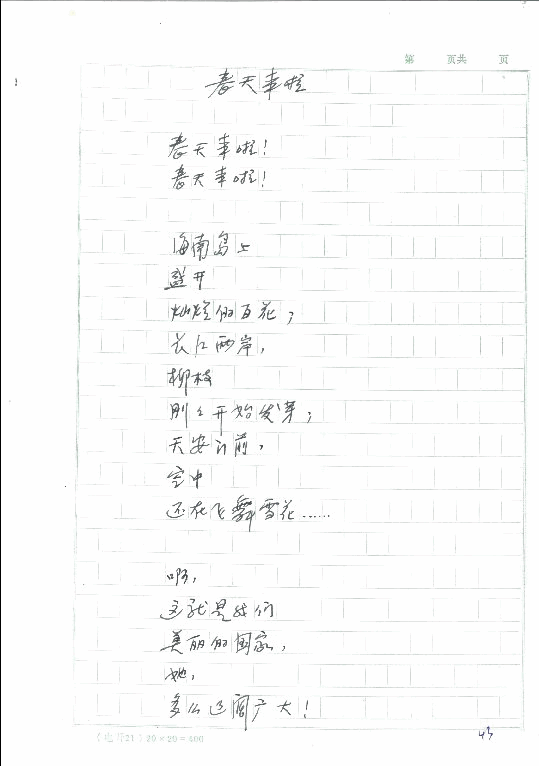 第 页共 页
春天来啦
春天来啦!
春天来啦!
海南岛上
盛开
灿烂的百花;
长江两岸,
柳枝
刚刚开始发芽;
天安门前,
空中
还在飞舞雪花……
啊,
这就是我们
美丽的国家,
她,
多么辽阔广大!
20×20=400
43